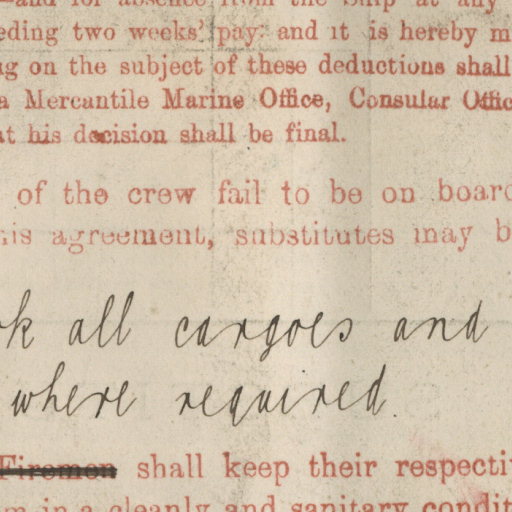 and for absence from the Ship at any
eding two weeks' pay: and it is hereby m
g on the subject of these deductions shall
a Mercantile Marine Office, Consular Offic
at his decision shall be final.
of the crew fail to be on board
his agreement, substitutes may b
ok all cargoes and
where required.
Firemen shall keep their respecti
m in a cleanly and sanitary condit